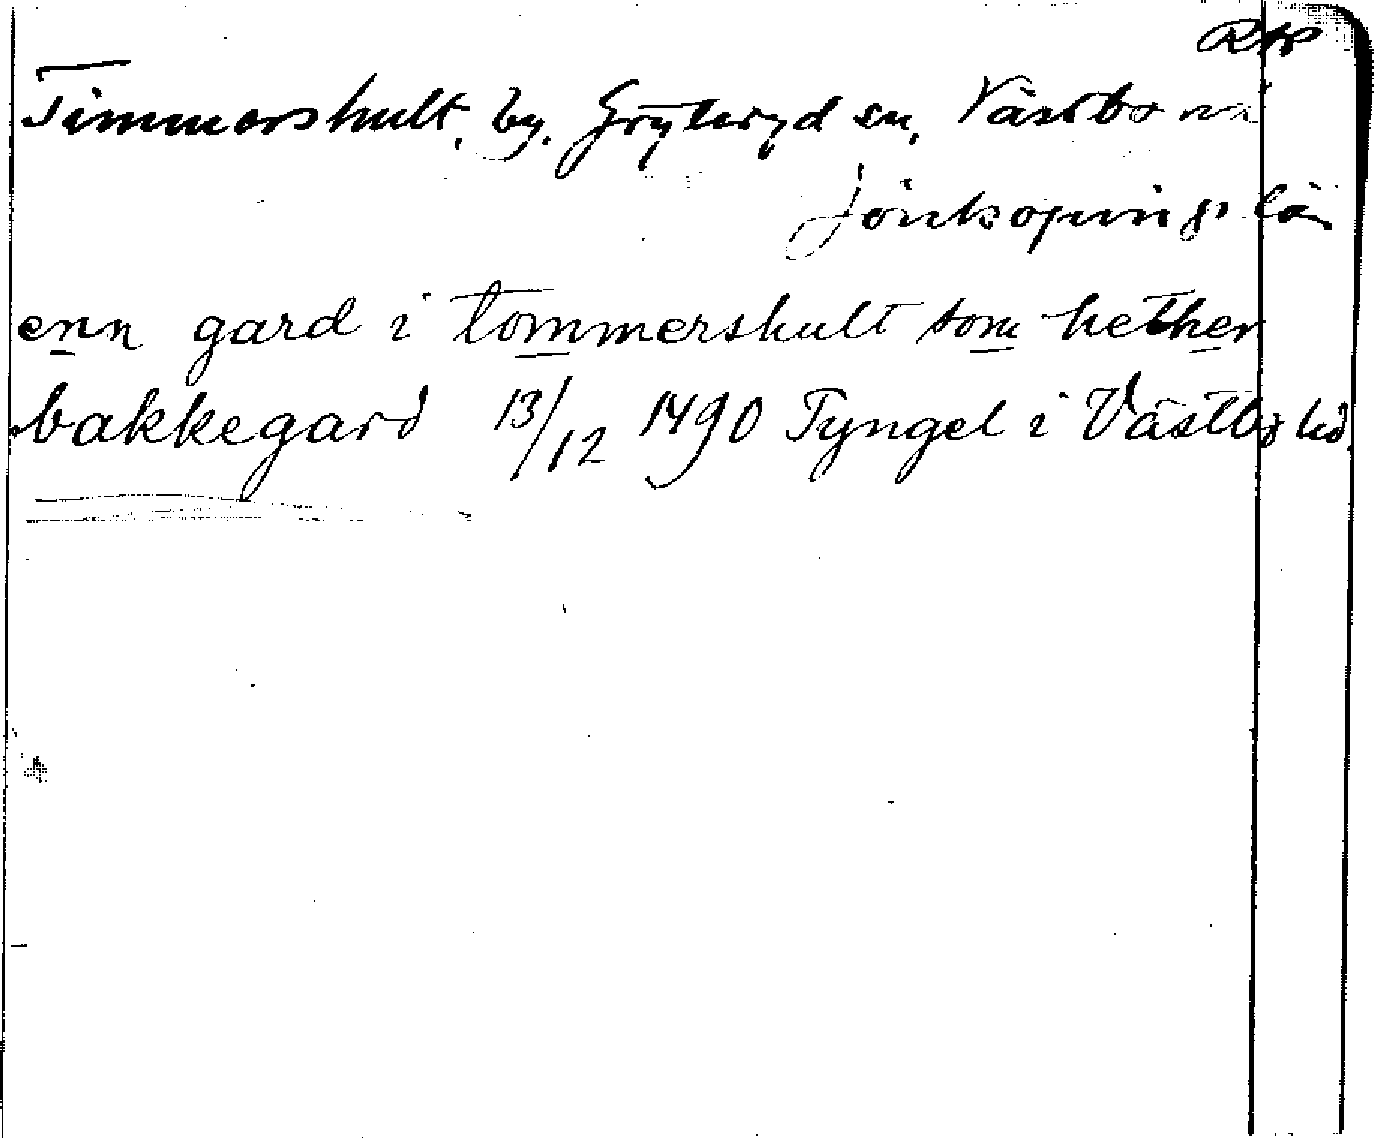 RAP
Timmershult, by, Gryteryd sn, Västbo
Jönköpings län
enn gard i tommershult som hether
bakkegard 13/12 1490 Tyngel i Västbo hd.